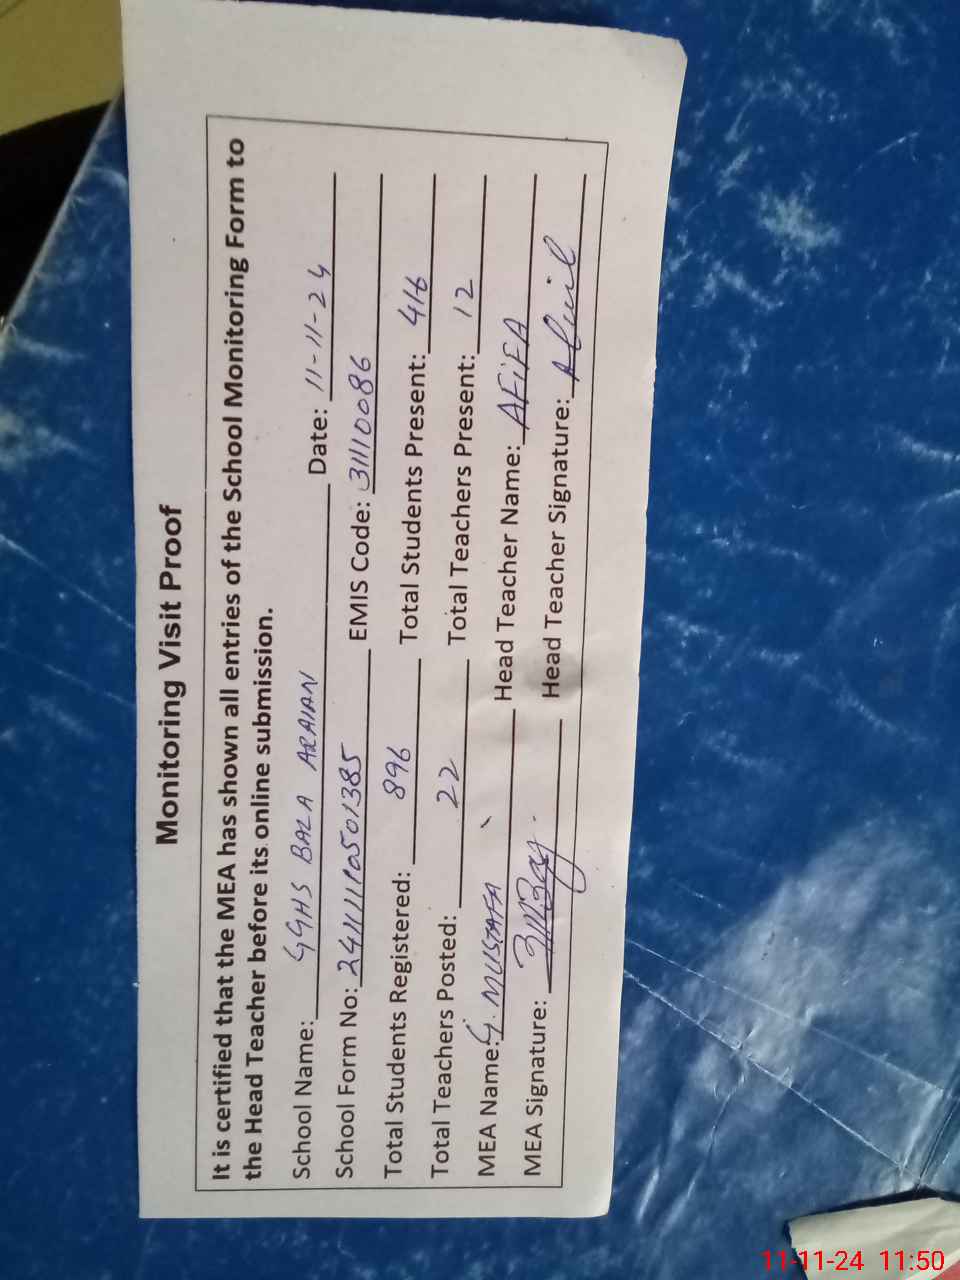 Monitoring Visit Proof
It is certified that the MEA has shown all entries of the School Monitoring Form to
the Head Teacher before its online submission.
School Name: GGHS BALA ARAIAN Date: 11-11-24
School Form No: EMIS Code: 31110086
Total Students Registered: 896 Total Students Present: 416
Total Teachers Posted: 22 Total Teachers Present: 12
MEA Name: G. MUSTAFA Head Teacher Name: AFiFA
MEA Signature: Head Teacher Signature:
11-11-24 11:50